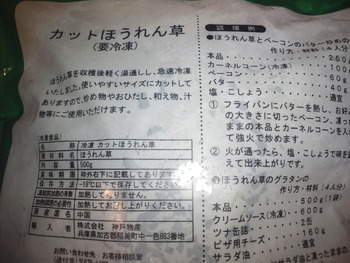 カットほうれん草
(要冷凍)
ほうれん草を収穫後軽く湯通しし、急速冷凍
いたしました。使いやすいサイズにカットして
ありますので、炒め物やおひたし、和え物、汁
物等にご使用いただけます。
[冷凍食品]
名称 冷凍 カットほうれん草
原材料名 ほうれん草
内容量 500g
賞味期限 枠外右下に記載してあります
保存方法 -18℃以下で保存してください
凍結前加熱の有無 加熱してありません
加熱調理の必要性 加熱してお召し上がりください
原産国 中国
輸入者 株式会社 神戸物産
兵庫県加古郡稲美町中一色883番地
お問い合わせ先 お客様相談室
調理例
●ほうれん草とベーコンのバター炒め
作り方・材料(4人分)
本品 250
カーネルコーン(冷凍) 100
ベーコン 60g
バター 40g
塩・こしょう 適宜
① フライパンにバターを熱し、お好
の大きさに切ったベーコン、凍った
ままの本品とカーネルコーンを入
て強火で炒めます。
② 火が通ったら、塩・こしょうで味を
えて出来上がりです。
●ほうれん草のグラタン
作り方・材料(4人分)
本品 500g(1袋)
クリームソース(冷凍) 600g
ツナ缶詰 2缶
ピザ用チーズ 160g
サラダ油 適宜